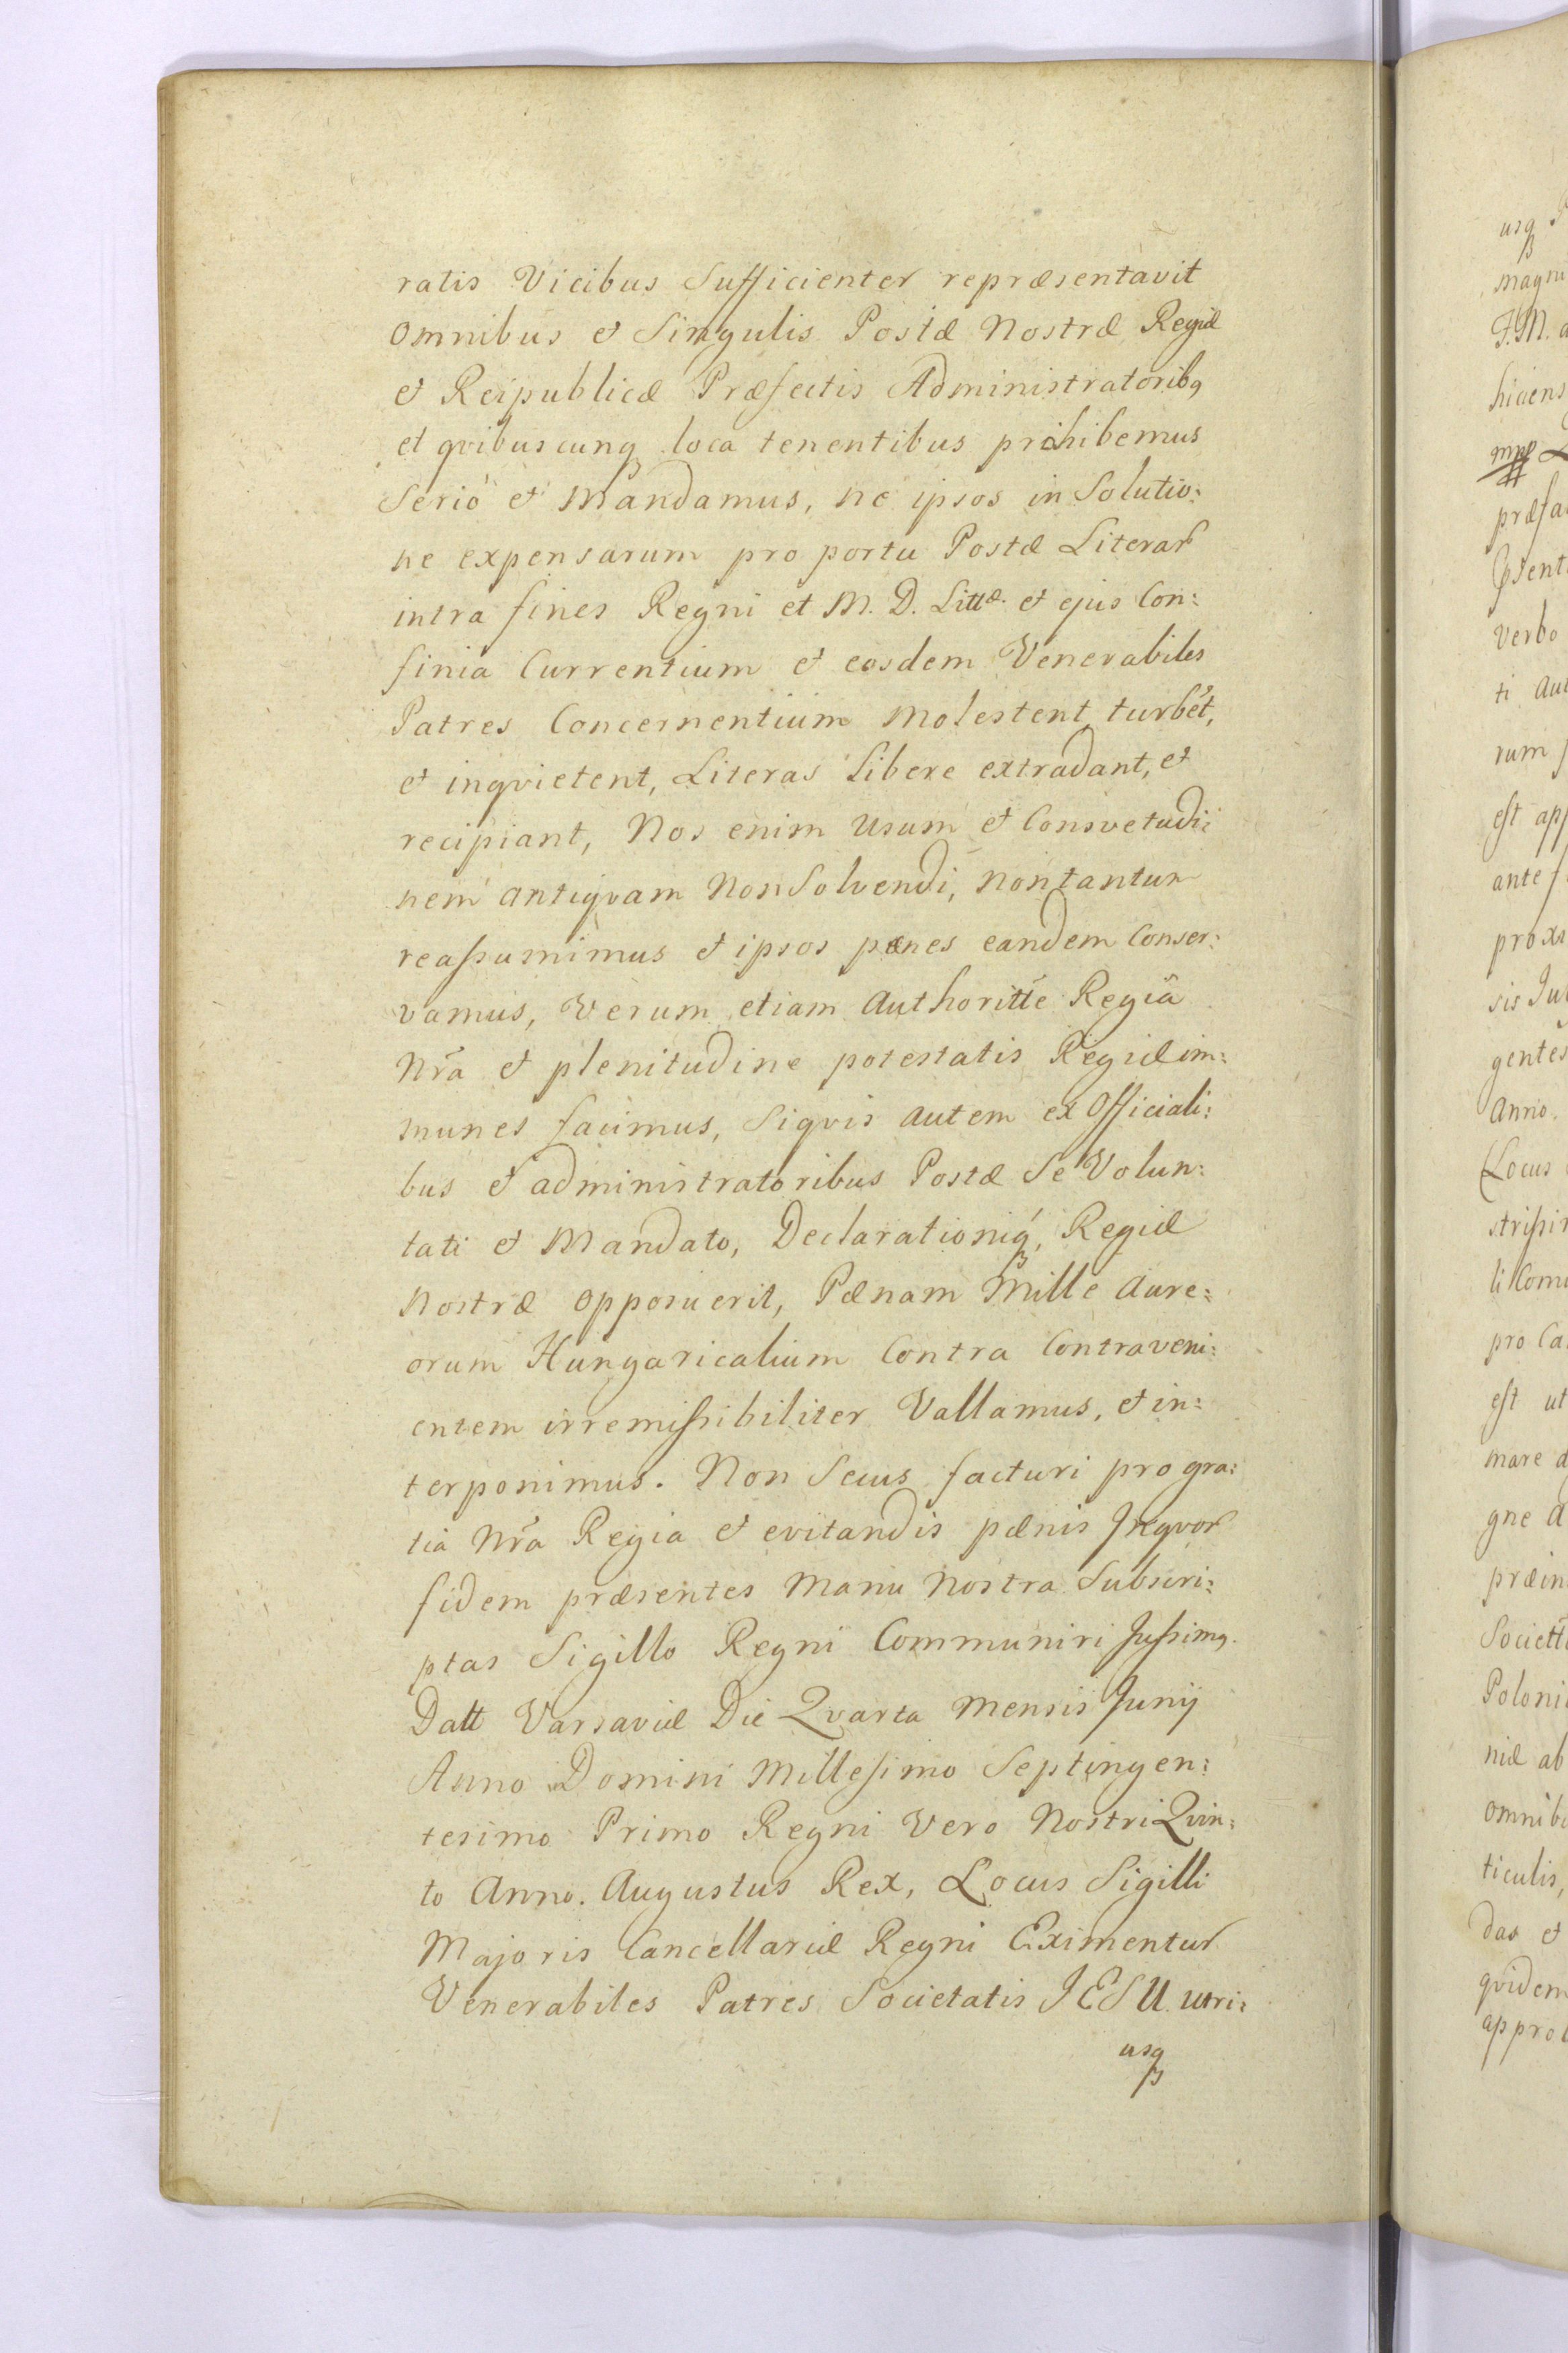 ratis Vicibus Sufficienter repræsentavit
Omnibus et Singulis Postæ Nostræ Regiæ
et Reipublicæ Præfectis Administratoribq
et qvibuscunq loca tenentibus prohibemus
Serio et Mandamus, ne ipsos in Solutio:
ne expensarum pro portu Postæ Literar
intra fines Regni et M. D. Littæ. et ejus Con:
finia Currentium et eosdem Venerabiles
Patres Concernentium Molestent turbēt,
et inqvietent, Literas Libere extradant, et
recipiant, Nos enim Usum et Consvetudi:
nem antiqvam Non Solvendi, non tantum
reassumimus et ipsos pænes eandem Conser:
vamus, Verum etiam Authoritte Regiâ
Nr̃a et plenitudine potestatis Regiæ im:
munes facimus, Siqvis autem ex Officiali:
bus et administratoribus Postæ Se Volun:
tati et Mandato, Declarationiq, Regiæ
Nostræ opposuerit, Pænam Mille Aure:
orum Hungaricalium Contra Contraveni:
entem irremissibiliter Vallamus, et in:
terponimus. Non Secus facturi pro gra:
tia Nr̃a Regia et evitandis pænis Inqvor
fidem præsentes Manu Nostra Subscri:
ptas Sigillo Regni Communiri Jussimq.
Datt Varsaviæ Die Qvarta Mensis Junij
Anno Domini Millesimo Septingen:
tesimo Primo Regni Vero Nostri Qvin:
to Anno. Augustus Rex, Locus Sigilli
Majoris Cancellariæ Regni Eximentur
Venerabiles Patres Societatis JESU utri:
usq
usq
magni
J.M.
hiciens
præfa
verbo
ti au
rum
est app
ante
proxi
sis Ju
gentes
Anno.
(Locus
strissi
li Com
pro Ca
est ut
mare
gne
præin
Societt
Poloni
niæ ab
omnib
ticulis,
das et
qvidem
approb